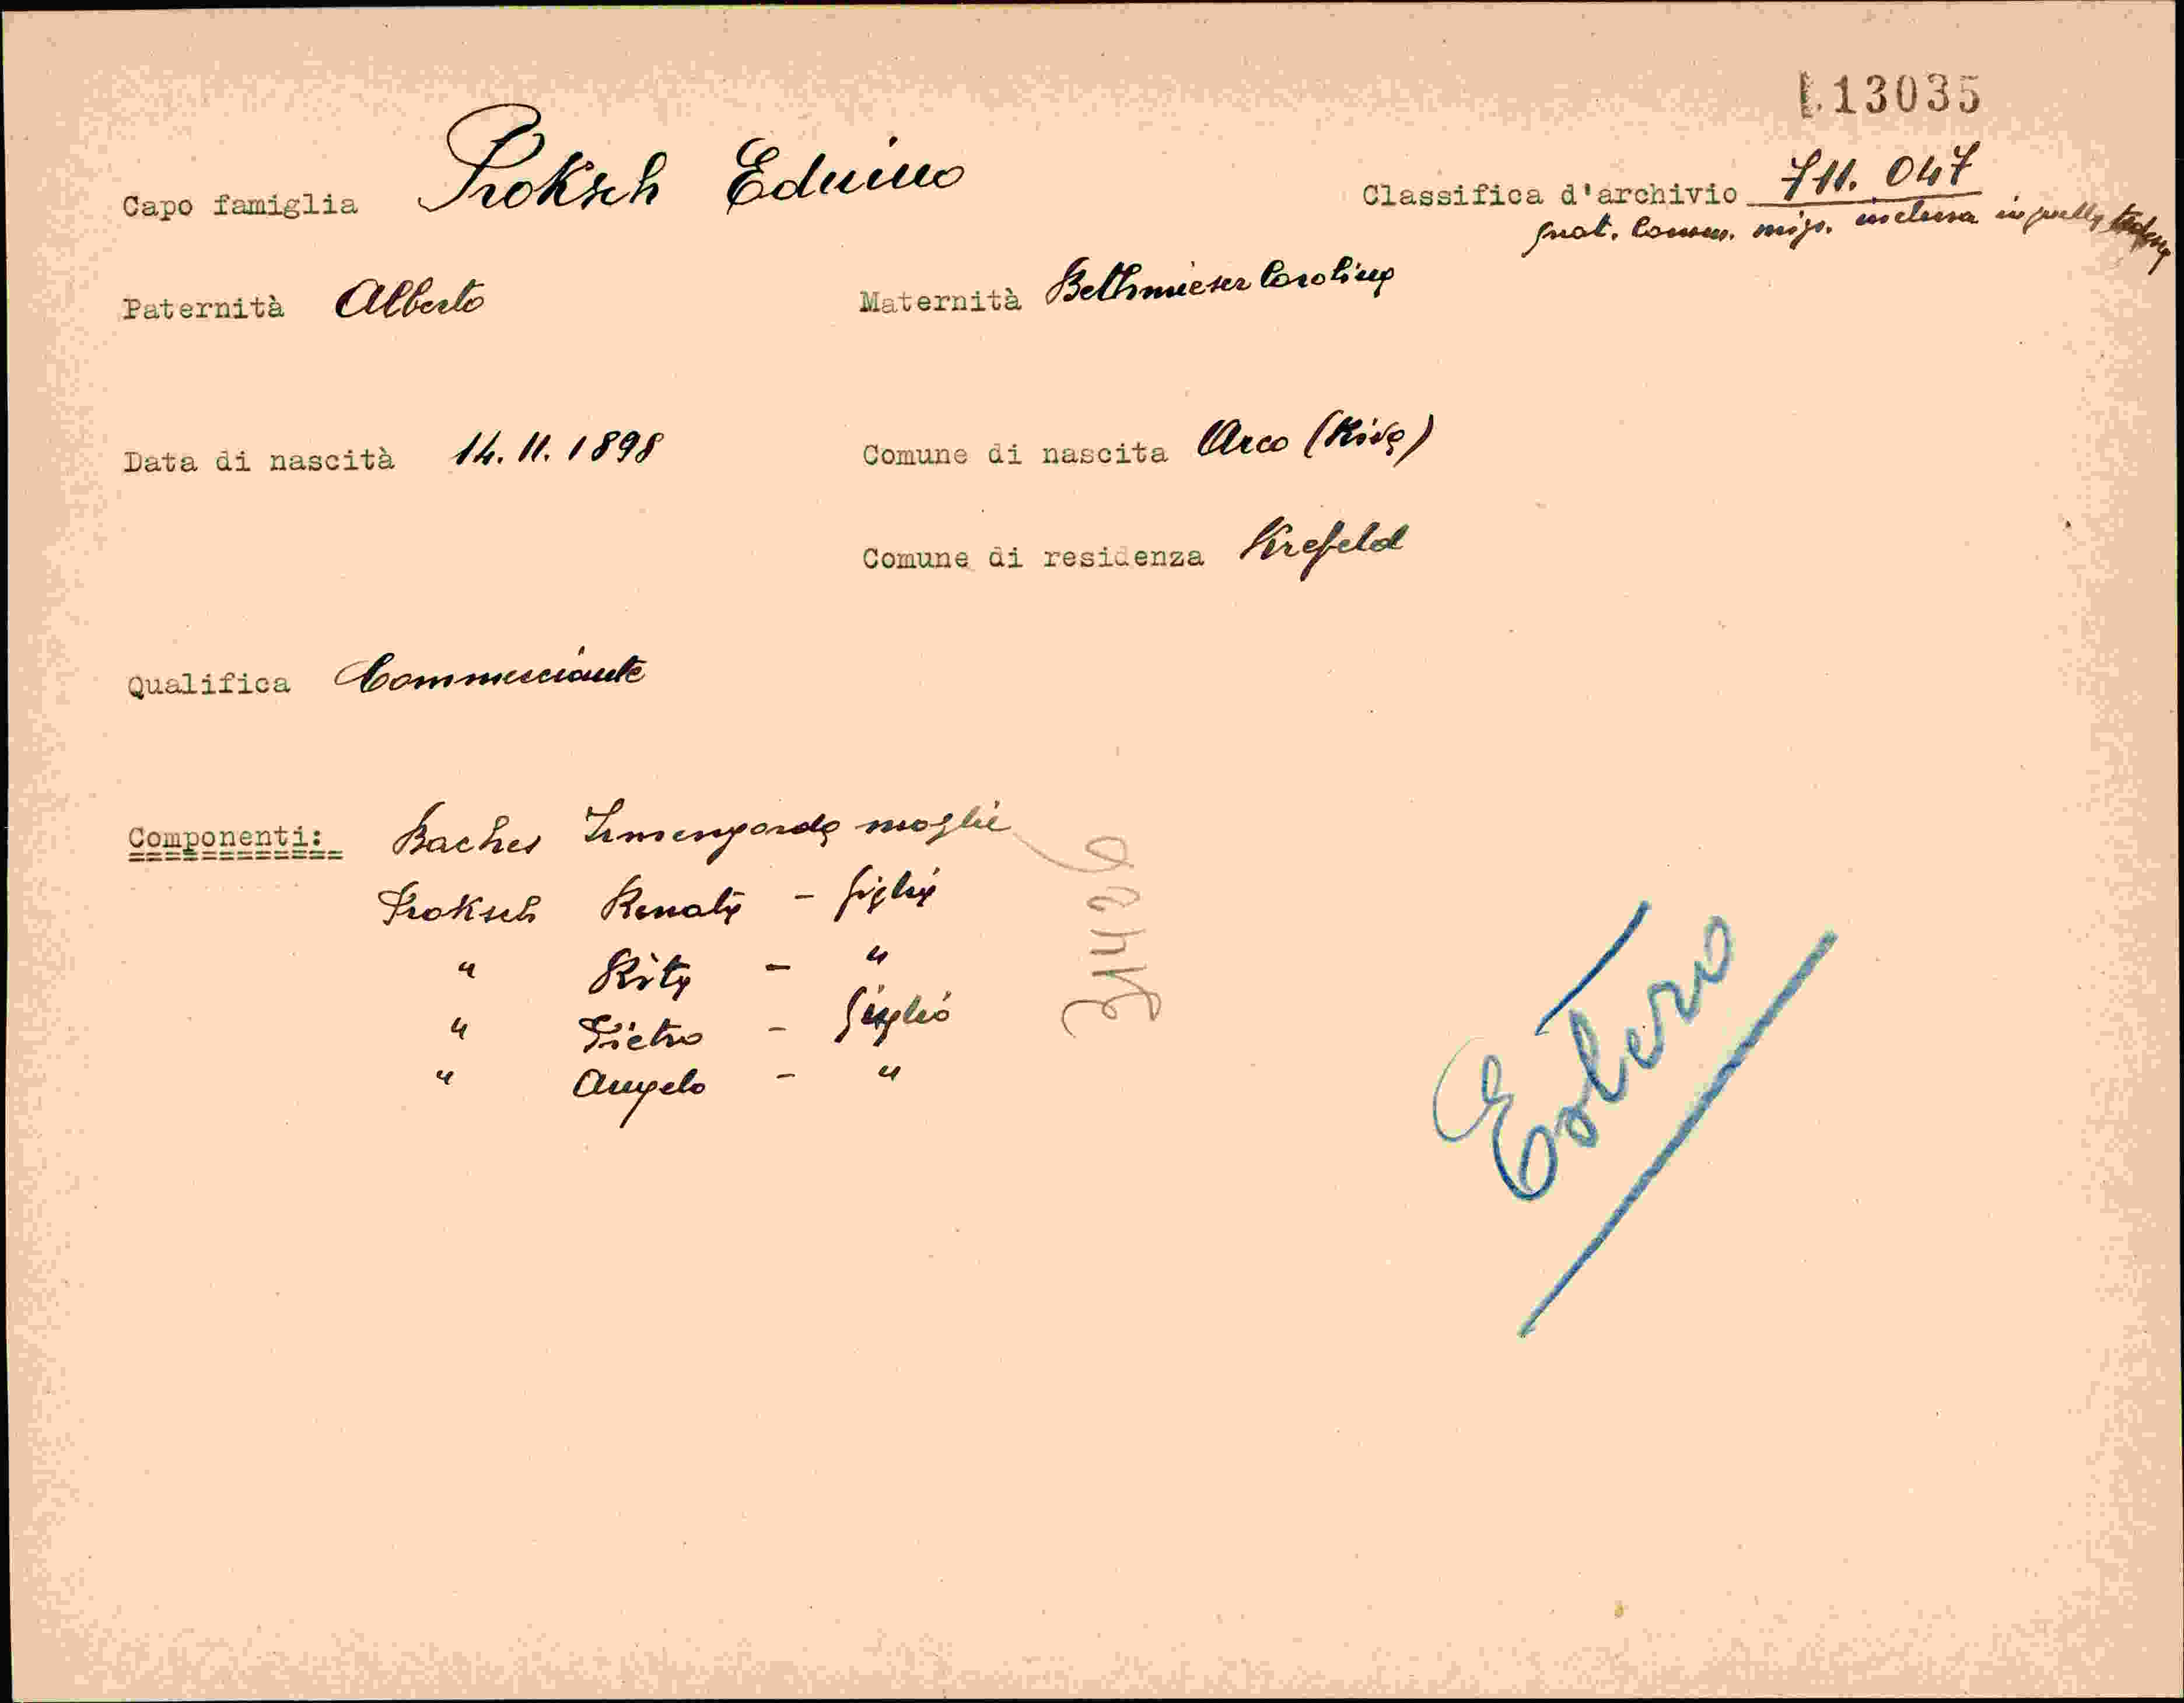 13035
Capo famiglia Proksch Eduino
Classifica d'archivio 711.047
prat. comm. migr. inclusa in quella tedesca
Paternità Alberto
Maternità Bethmieser Carolina
Data di nascità 14.11.1898
Comune di nascita Arco (Riva)
Comune di residenza Krefeld
Qualifica Commerciante
Componenti: Baches Irmengarda moglie
Proksch Renata - figlia
" Rita - "
" Pietro - figlio
" Angelo - "
31406
Estero